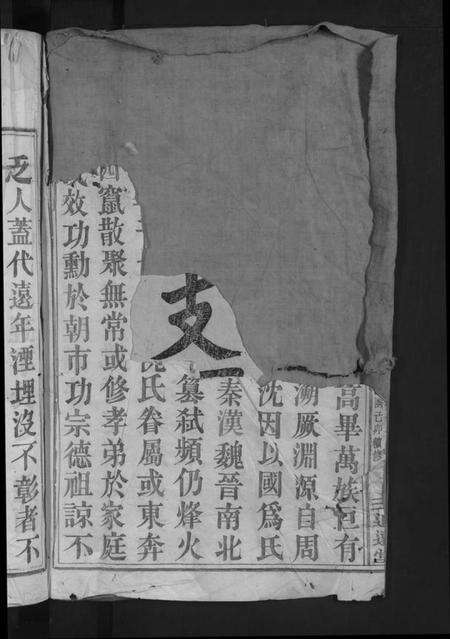 高畢萬族恒有
溯厥淵源自周
沈因以國爲氏
秦漢魏晉南北
篡弑頻仍烽火
氏眷屬或東奔
支
四竄散聚無常或修孝弟於家庭
效功勳於朝市功宗德祖諒不
乏人蓋代遠年湮埋沒不彰者不